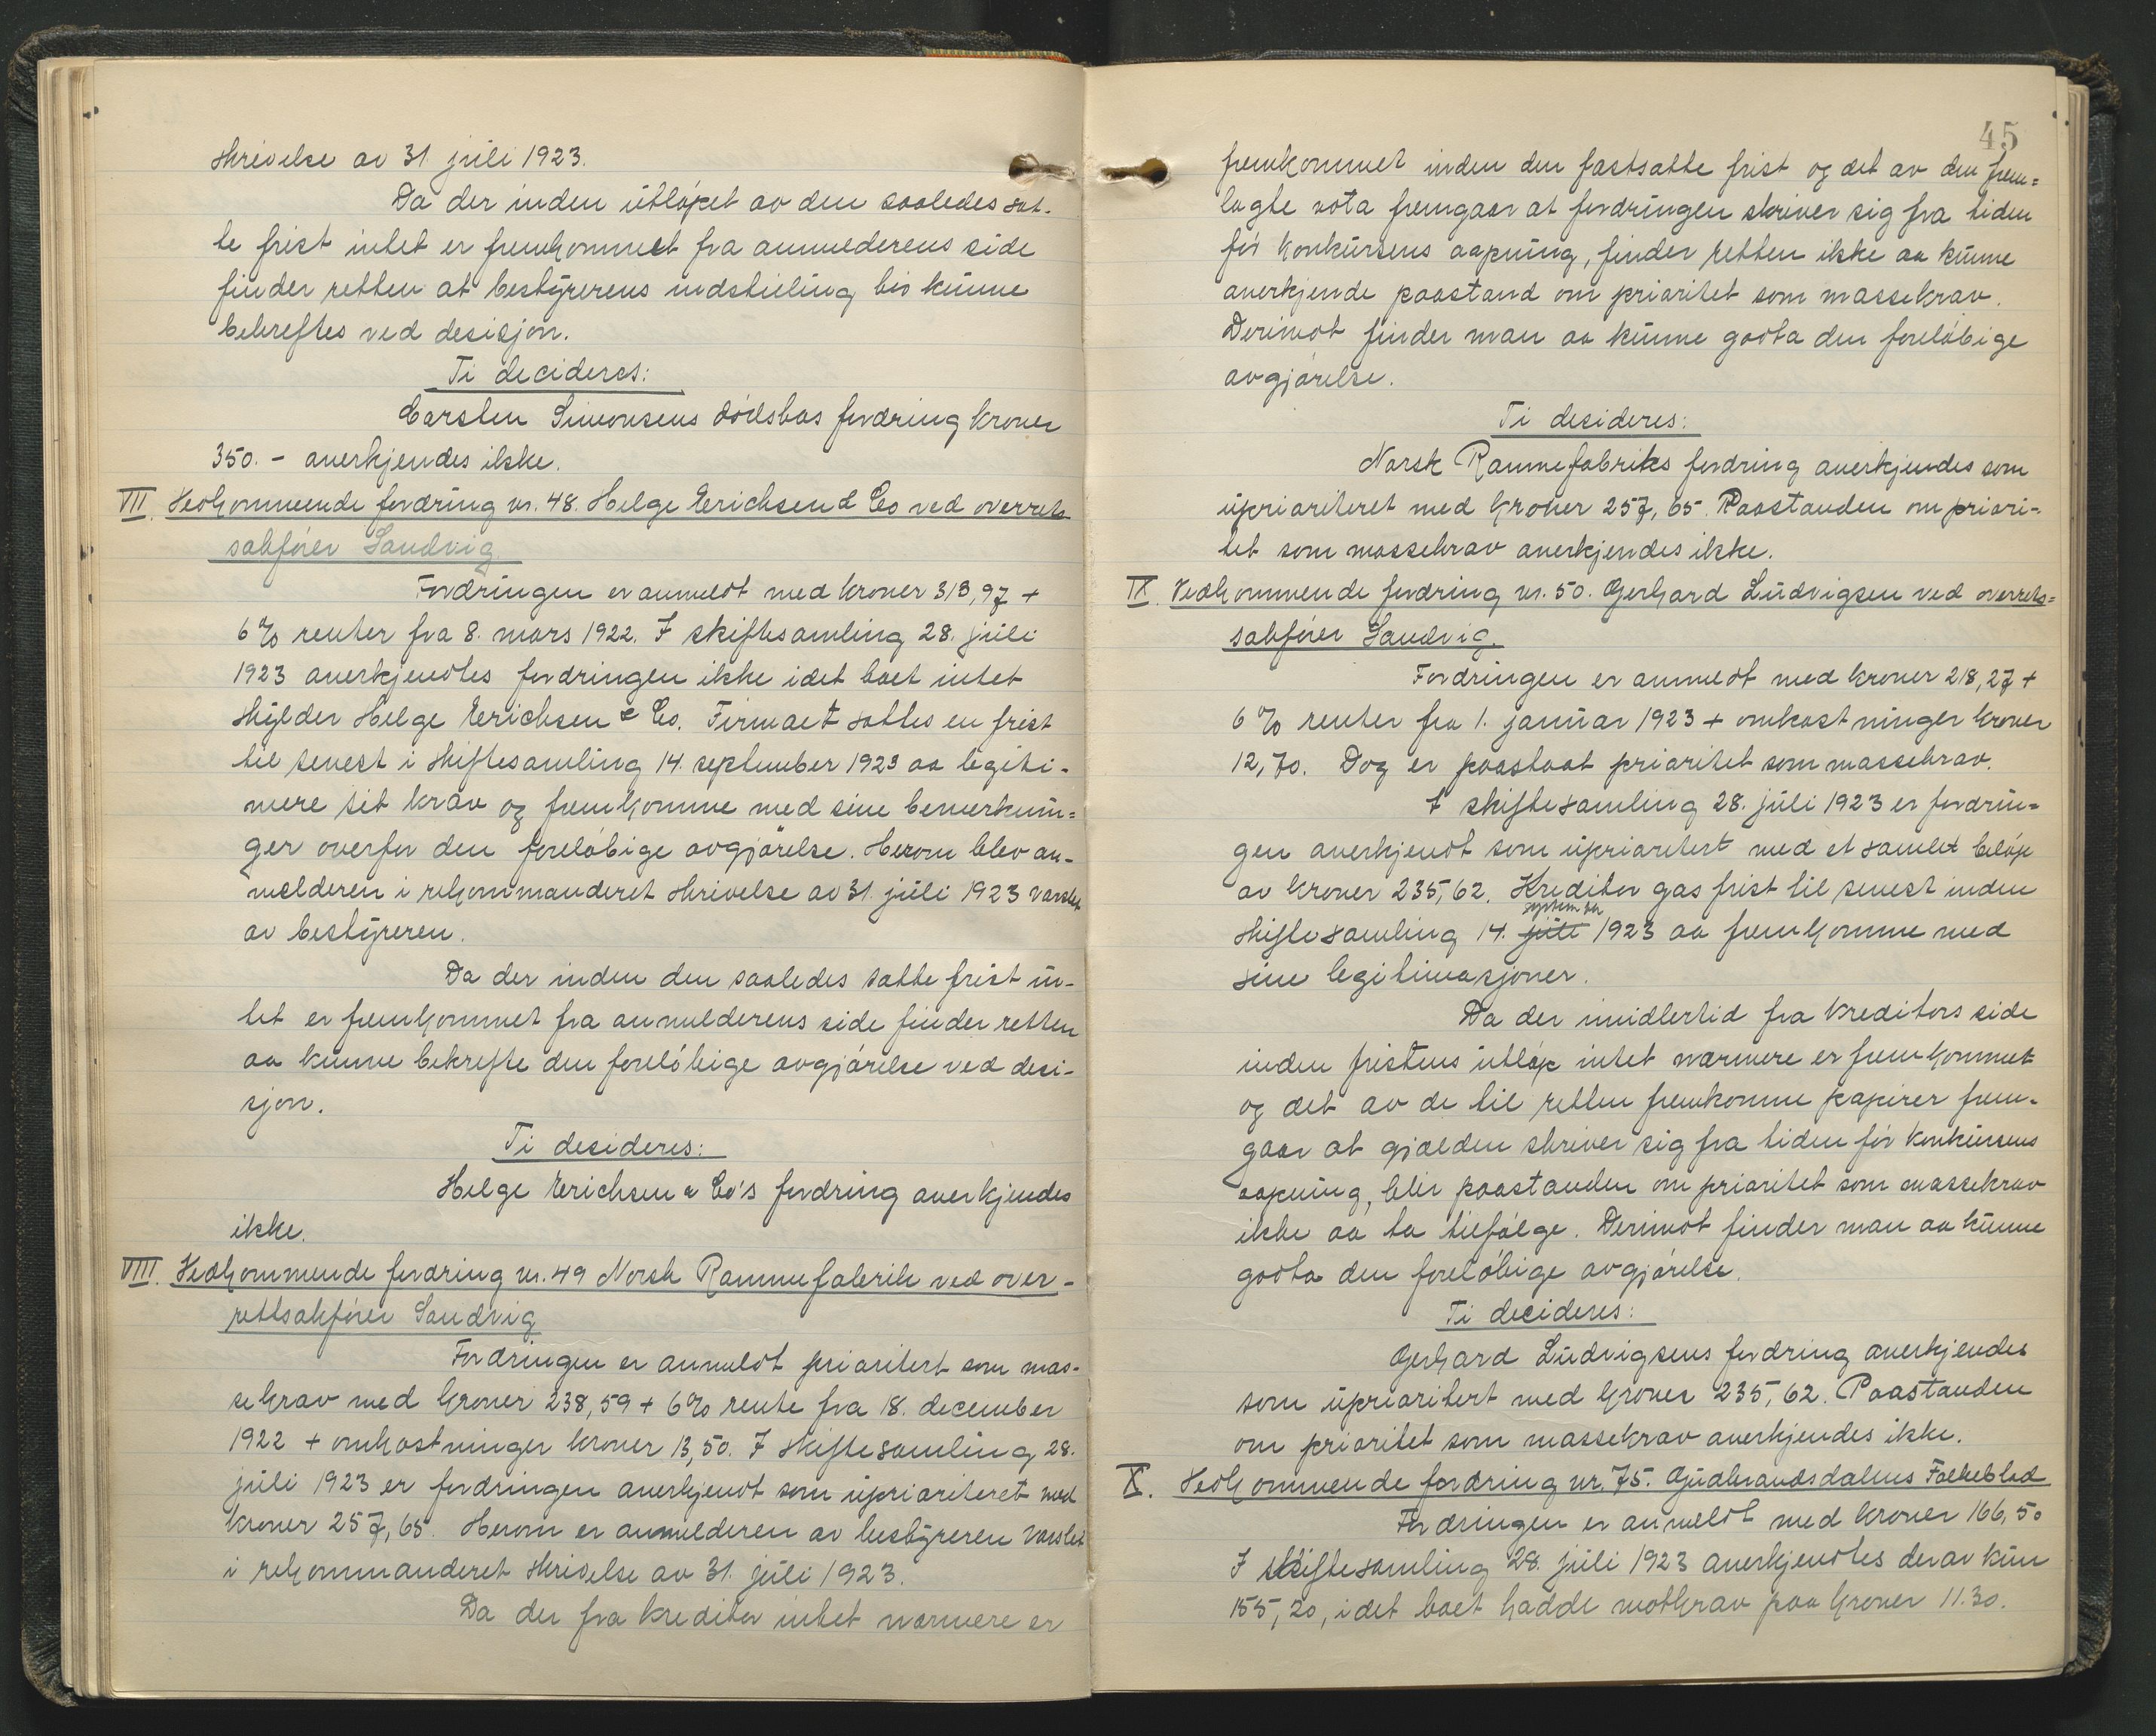 skrivelse av 31. juli 1923.
Da der inden utløpet av den saaledes sat-
te frist intet er fremkommet fra anmelderens side
finder retten at bestyrerens indstilling bør kunne
bekreftes ved desisjon.
Ti decideres:
Carsten Simonsens dødsbos fordring kroner
350.- anerkjendes ikke.
VII. Vedkommende fordring nr. 48. Helge Erichsen & Co ved overrets
sakfører Sandvig
Fordringen er anmeldt med kroner 313,97 +
6% renter fra 8. mars 1922. I skiftesamling 28. juli
1923 anerkjendtes fordringen ikke idet boet intet
skylder Helge Erichsen & Co. Firmaet sattes en frist
til senest i skiftesamling 14. september 1923 aa legiti-
mere sit krav og fremkomme med sine bemerknin=
ger overfor den foreløbige avgjørelse. Herom blev an-
melderen i rekommanderet skrivelse av 31. juli 1923 varslet
av bestyreren.
Da der inden den saaledes satte frist in-
tet er fremkommet fra anmelderens side finder retten
aa kunne bekrefte den foreløbige avgjørelse ved desi-
sjon.
Ti desideres:
Helge Erichsen & Co's fordring anerkjendes
ikke.
VIII. Vedkommende fordring nr. 49 Norsk Rammefabrik ved over-
rettsakfører Sandvig
Fordringen er anmeldt prioritert som mas-
sekrav med kroner 238,59 + 6% rente fra 18. december
1922 + omkostninger kroner 13,50. I skiftesamling 28.
juli 1923 er fordringen anerkjendt som uprioriteret med
kroner 257,65. Herom er anmelderen av bestyreren varslet
i rekommanderet skrivelse av 31. juli 1923.
Da der fra kreditor intet nærmere er
45
fremkommet inden den fastsatte frist og det av den frem=
lagte nota fremgaar at fordringen skriver sig fra tiden
før konkursens aapning, finder retten ikke aa kunne
anerkjende paastand om prioritet som massekrav.
Derimot finder man aa kunne godta den foreløbige
avgjørelse.
Ti desideres:
Norsk Rammefabriks fordring anerkjendes som
uprioriteret med kroner 257,65. Paastanden om priori-
tet som massekrav anerkjendes ikke.
IX. Vedkommende fordring nr. 50. Gerhard Ludvigsen ved overrets=
sakfører Sandvig.
Fordringen er anmeldt med kroner 218,27 +
6% renter fra 1. januar 1923 + omkostninger kroner
12,70. Dog er paastaat prioritet som massekrav.
I skiftesamling 28. juli 1923 er fordrin=
gen anerkjendt som uprioritert med et samlet beløp
av kroner 235,62. Kreditor gas frist til senest inden
september
skiftesamling 14. juli 1923 aa fremkomme med
sine legitimasjoner.
Da der imidlertid fra kreditors side
inden fristens utløp intet nærmere er fremkommet
og det av de til retten fremkomne papirer frem-
gaar at gjælden skriver sig fra tiden før konkursens
aapning, blir paastanden om prioritet som massekrav
ikke aa ta tilfølge. Derimot finder man aa kunne
godta den foreløbige avgjørelse.
Ti decideres:
Gerhard Ludvigsens fordring anerkjendes
som uprioritert med kroner 235,62. Paastanden
om prioritet som massekrav anerkjendes ikke.
X. Vedkommende fordring nr. 75. Gudbrandsdalens Folkeblad
Fordringen er anmeldt med kroner 166,50
I skiftesamling 28. juli 1923 anerkjendtes derav kun
155,20, idet boet hadde motkrav paa kroner 11.30.